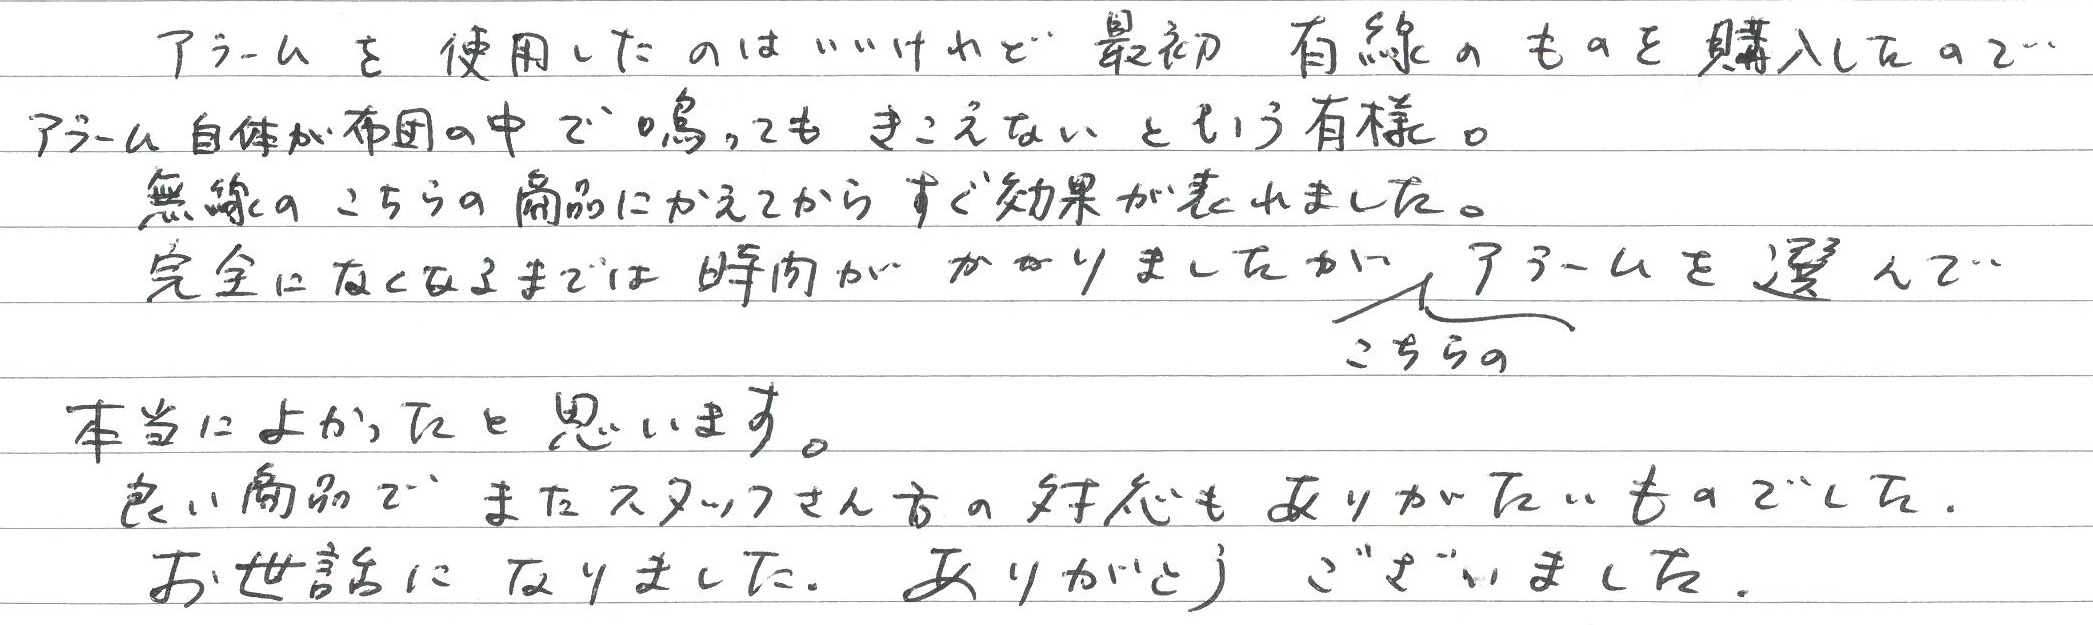 アラームを使用したのはいいけれど 最初 有線のものを購入したので
アラーム自体が布団の中で鳴ってもきこえないという有様。
無線のこちらの商品にかえてからすぐ効果が表れました。
完全になくなるまでは時間がかかりましたが アラームを選んで
こちらの
本当によかったと思います。
良い商品で またスタッフさん方の対応もありがたいものでした.
お世話になりました. ありがとうございました.